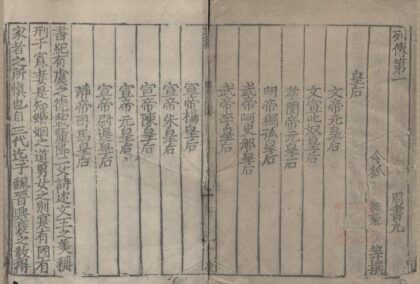 列傳第一 周書九
令狐 德棻 等撰
皇后
文帝元皇后
文宣叱奴皇后
孝閔帝元皇后
明帝獨孤皇后
武帝阿史那皇后
武帝李皇后
宣帝楊皇后
宣帝朱皇后
宣帝陳皇后
宣帝元皇后
宣帝尉遲皇后
靜帝司馬皇后
書紀有虞之德載釐降二女詩述文王之美稱
刑于寡妻是知婚姻之道男女之別寔有國有
家者之所慎也自三代迄于魏晉興衰之數得